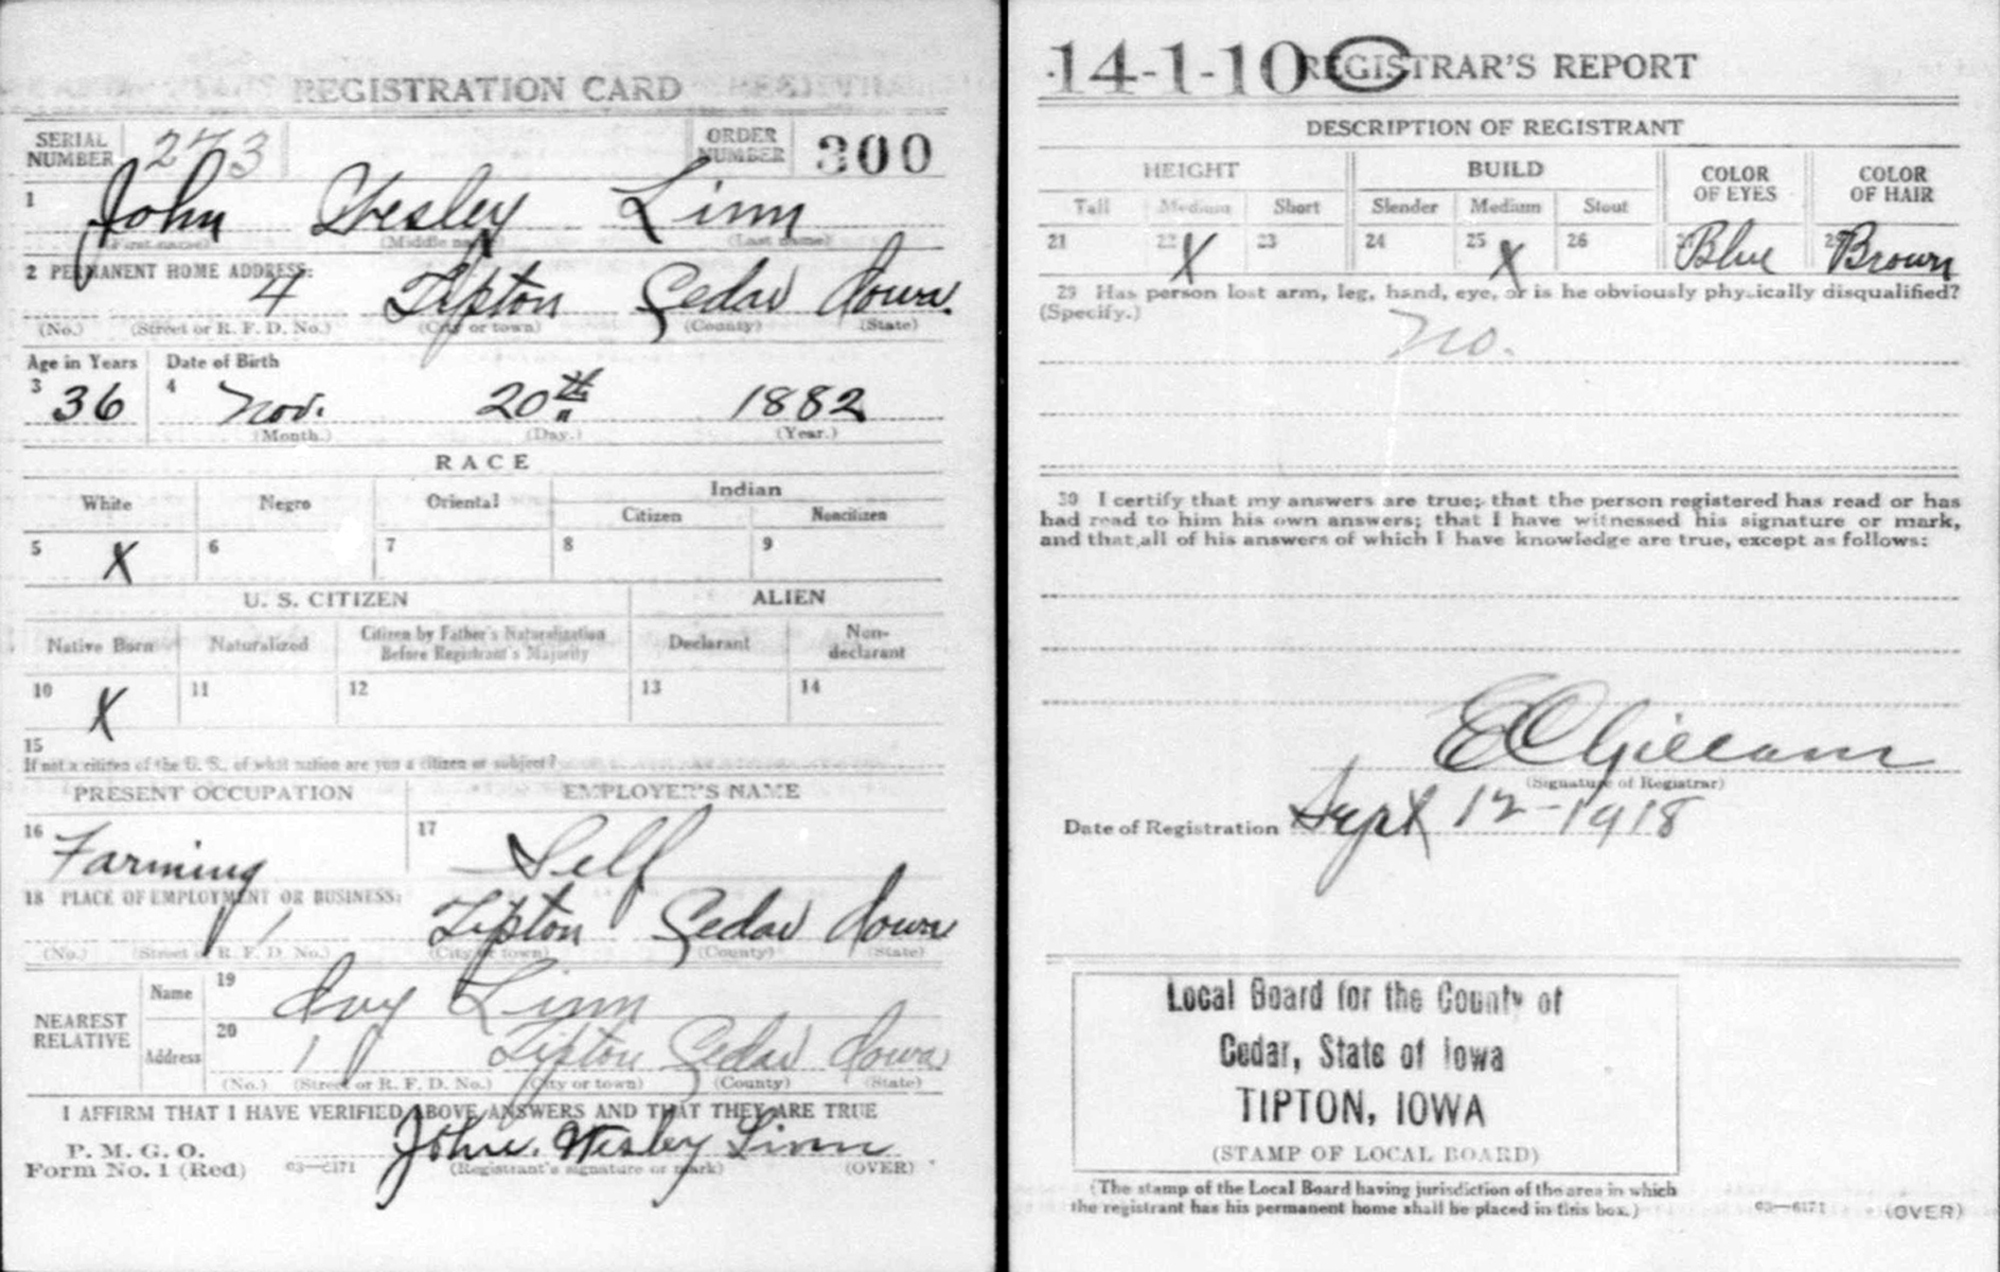 REGISTRATION CARD
SERIAL NUMBER 273 ORDER NUMBER 300
1 John Wesley Linn
(First name) (Middle name) (Last name)
2 PERMANENT HOME ADDRESS:
4 Tipton Cedar Iowa
(No.) (Street or R. F. D. No.) (City or town) (County) (State)
Age in Years Date of Birth
3 36 4 Nov. 20th 1882
(Month.) (Day.) (Year.)
RACE
White Negro Oriental Indian
Citizen Noncitizen
5 X 6 7 8 9
U. S. CITIZEN ALIEN
Native Born Naturalized Citizen by Father's Naturalization Before Registrant's Majority Declarant Non-declarant
10 X 11 12 13 14
15
If not a citizen of the U. S., of what nation are you a citizen or subject?
PRESENT OCCUPATION EMPLOYER'S NAME
16 Farming 17 Self
18 PLACE OF EMPLOYMENT OR BUSINESS:
Tipton Cedar Iowa
(No.) (Street or R. F. D. No.) (City or town) (County) (State)
NEAREST RELATIVE Name 19 Ivy Linn
Address 20 1 Tipton Cedar Iowa
(No.) (Street or R. F. D. No.) (City or town) (County) (State)
I AFFIRM THAT I HAVE VERIFIED ABOVE ANSWERS AND THAT THEY ARE TRUE
P. M. G. O.
Form No. 1 (Red) 03—6171 John Wesley Linn
(Registrant's signature or mark) (OVER)
14-1-10 C REGISTRAR'S REPORT
DESCRIPTION OF REGISTRANT
HEIGHT BUILD COLOR OF EYES COLOR OF HAIR
Tall Medium Short Slender Medium Stout
21 22 X 23 24 25 X 26 27 Blue 28 Brown
29 Has person lost arm, leg, hand, eye, or is he obviously physically disqualified?
(Specify.)
No.
30 I certify that my answers are true; that the person registered has read or has
had read to him his own answers; that I have witnessed his signature or mark,
and that all of his answers of which I have knowledge are true, except as follows:
E C Gillam
(Signature of Registrar)
Date of Registration Sept 12-1918
Local Board for the County of
Cedar, State of Iowa
TIPTON, IOWA
(STAMP OF LOCAL BOARD)
(The stamp of the Local Board having jurisdiction of the area in which
the registrant has his permanent home shall be placed in this box.)
03—6171 (OVER)